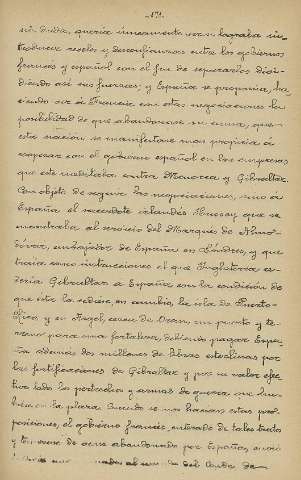 -172-
sin duda, quería únicamente ver si lograba in-
troducir recelos y desconfianzas entre los gobiernos
francés y español con el fin de separarlos divi-
diendo así sus fuerzas, y España se proponía, ha-
ciendo ver a Francia con estas negociaciones la
posibilidad de que abandonase su causa, que
esta nación se manifestara más propicia á
cooperar con el gobierno español en las empresas
que este meditaba contra Menorca y Gibraltar.
Con objeto de seguir las negociaciones, vino a
España el sacerdote irlandés Hussey, que se
encontraba al servicio del Marqués de Almo-
dóvar, embajador de España en Londres, y que
traía como instrucciones el que Inglaterra ce-
dería Gibraltar a España con la condición de
que esta la cediese en cambio, la isla de Puerto-
Rico, y en Argel, cerca de Orán, un puerto y te-
rreno para una fortaleza, debiendo pagar Espa-
ña además dos millones de libras esterlinas por
las fortificaciones de Gibraltar y por su valor efec-
tivo todos los pertrechos y armas de guerra, que hu-
biera en la plaza. Cuando se nos hicieron estas pro-
posiciones, el gobierno francés, enterado de tales tratos
y temeroso de verse abandonado por España, envió
del Conde de